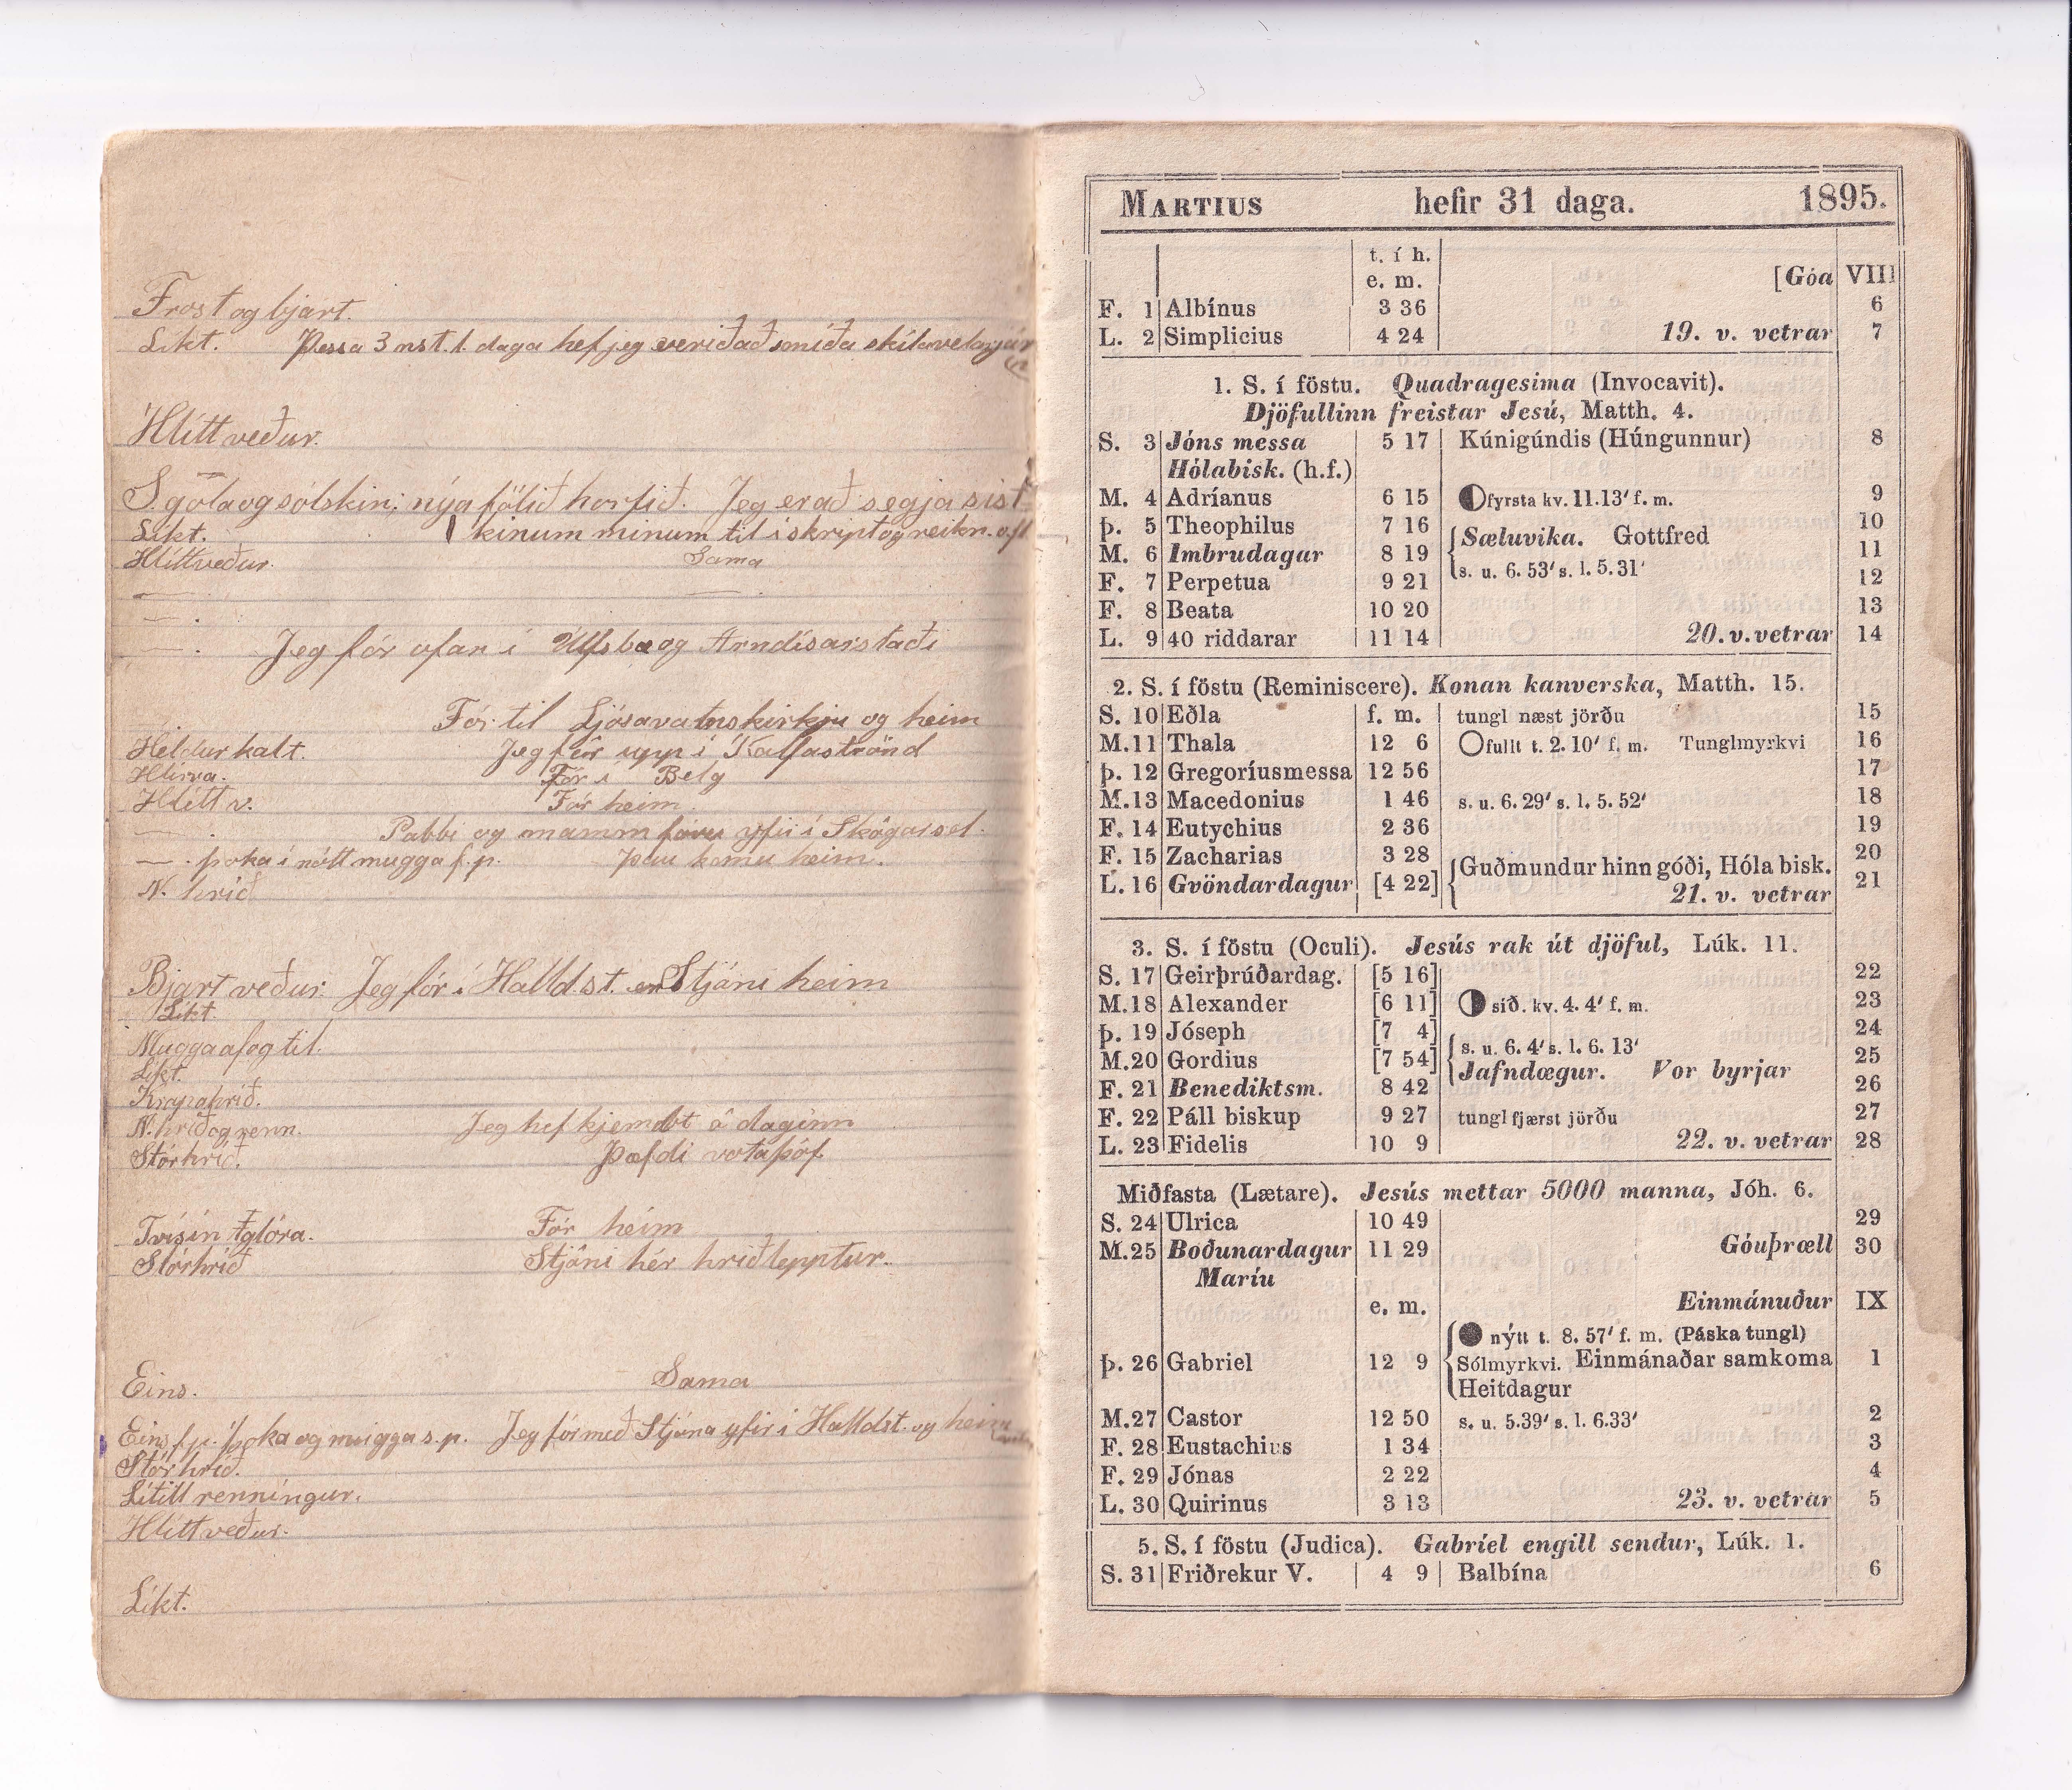 Frost og bjart.
Líkt. Þessa 3 nst. l. daga hef jeg verið að smíða
Hlítt veður.
S. gola og sólskin; nýa fölið horfið. Jeg er að segja sist
Líkt. kinum minum til i skript og reikn.
Hlítt veður. Sama
— —
— .
— . Jeg fór ofan í Úlfsbæ og Arndísarstaði
Fór til Ljósavatnskirkju og heim
Heldur kalt. Jeg fór upp í Kálfaströnd
Hlirra. Fór í Belg
Hlítt v. Fór heim.
— . Pabbi og mamma fóru yfir í Skógarsel.
— . þoka í nótt mugga f. p. Þau komu heim.
N. hríð
Bjart veður. Jeg fór í Halldst. en Stjáni heim
Líkt.
Mugga af og til.
Líkt.
Krapahríð.
N. hríð og renn. Jeg hef kjemdt á daginn
Stórhríð. Þæfdi votaþóf.
Tvísín glóra. Fór heim
Stórhríð Stjáni hér hríðtepptur.
Eins. Sama
Eins f. p. þoka og mugga s. p. Jeg fór með Stjána yfir í Halldst. og heim
Stórhríð.
Lítill renníngur.
Hlítt veður.
Líkt.
MARTIUS hefir 31 daga. 1895.
t. í h.
e. m. [Góa VIII
F. 1 Albínus 3 36 6
L. 2 Simplicius 4 24 19. v. vetrar 7
1. S. í föstu. Quadragesima (Invocavit).
Djöfullinn freistar Jesú, Matth. 4.
S. 3 Jóns messa 5 17 Kúnigúndis (Húngunnur) 8
Hólabisk. (h.f.)
M. 4 Adríanus 6 15 fyrsta kv. 11.13′ f. m. 9
þ. 5 Theophilus 7 16 10
Sæluvika. Gottfred
M. 6 Imbrudagar 8 19 11
s. u. 6. 53′ s. l. 5. 31′
F. 7 Perpetua 9 21 12
F. 8 Beata 10 20 13
L. 9 40 riddarar 11 14 20. v. vetrar 14
2. S. í föstu (Reminiscere). Konan kanverska, Matth. 15.
S. 10 Eðla f. m. tungl næst jörðu 15
M. 11 Thala 12 6 fullt t. 2. 10′ f. m. Tunglmyrkvi 16
þ. 12 Gregoríusmessa 12 56 17
M. 13 Macedonius 1 46 s. u. 6. 29′ s. l. 5. 52′ 18
F. 14 Eutychius 2 36 19
F. 15 Zacharias 3 28 20
Guðmundur hinn góði, Hóla bisk.
L. 16 Gvöndardagur [4 22] 21
21. v. vetrar
3. S. í föstu (Oculi). Jesús rak út djöful, Lúk. 11.
S. 17 Geirþrúðardag. [5 16] 22
M. 18 Alexander [6 11] síð. kv. 4. 4′ f. m. 23
þ. 19 Jóseph [7 4] 24
s. u. 6. 4′ s. l. 6. 13′
M. 20 Gordius [7 54] 25
Jafndœgur. Vor byrjar
F. 21 Benediktsm. 8 42 26
F. 22 Páll biskup 9 27 tungl fjærst jörðu 27
L. 23 Fidelis 10 9 22. v. vetrar 28
Miðfasta (Lætare). Jesús mettar 5000 manna, Jóh. 6.
S. 24 Ulrica 10 49 29
M. 25 Boðunardagur 11 29 Góuþræll 30
Maríu
e. m. Einmánuður IX
nýtt t. 8. 57′ f. m. (Páska tungl)
þ. 26 Gabriel 12 9 Sólmyrkvi. Einmánaðar samkoma 1
Heitdagur
M. 27 Castor 12 50 s. u. 5.39′ s. l. 6.33′ 2
F. 28 Eustachius 1 34 3
F. 29 Jónas 2 22 4
L. 30 Quirinus 3 13 23. v. vetrar 5
5. S. í föstu (Judica). Gabríel engill sendur, Lúk. 1.
S. 31 Friðrekur V. 4 9 Balbína 6